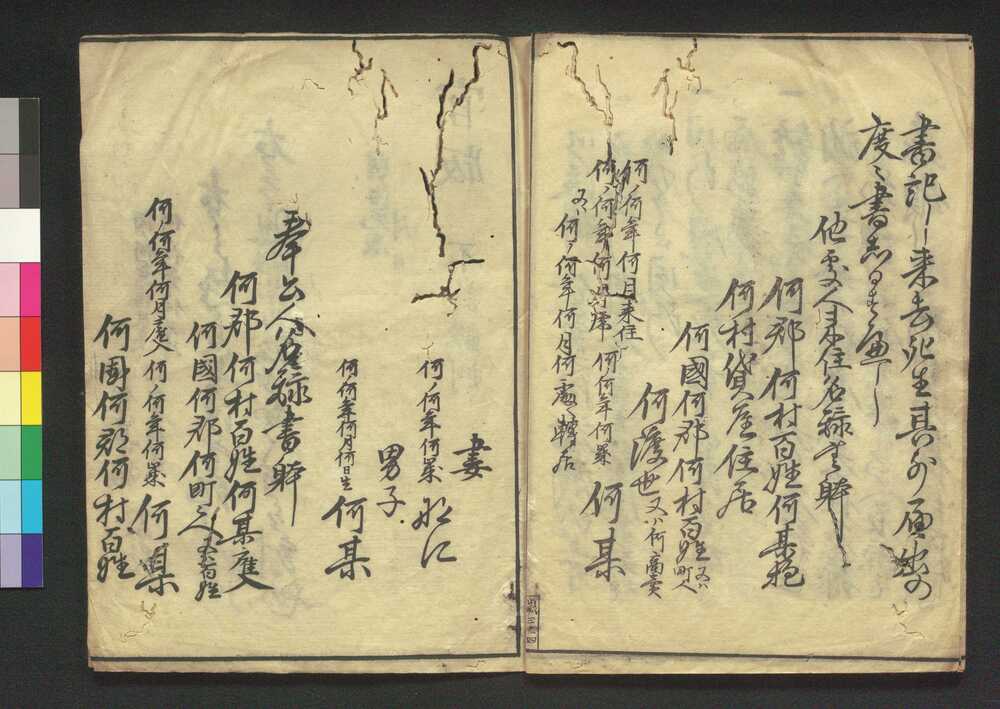 書記し来去死生其外届出の
度々書出し可申届し
他処人来住名録書斡
何郡何村百姓何某抱
何村貸屋住居
何國何郡何村百姓又ハ町人
何渡世又ハ何商賣
何ノ何年何月来住
何ノ何年何月帰 何何年何歳 何某
又ハ何ノ何年何月何處轉居
妻
何ノ何年何歳
男子
何何年何月何日生 何某
奉公人名録書斡
何郡何村百姓何某雇人
何國何郡何町之人又百姓
何何年何月雇入 何ノ何年何歳 何某
何國何郡何村百姓